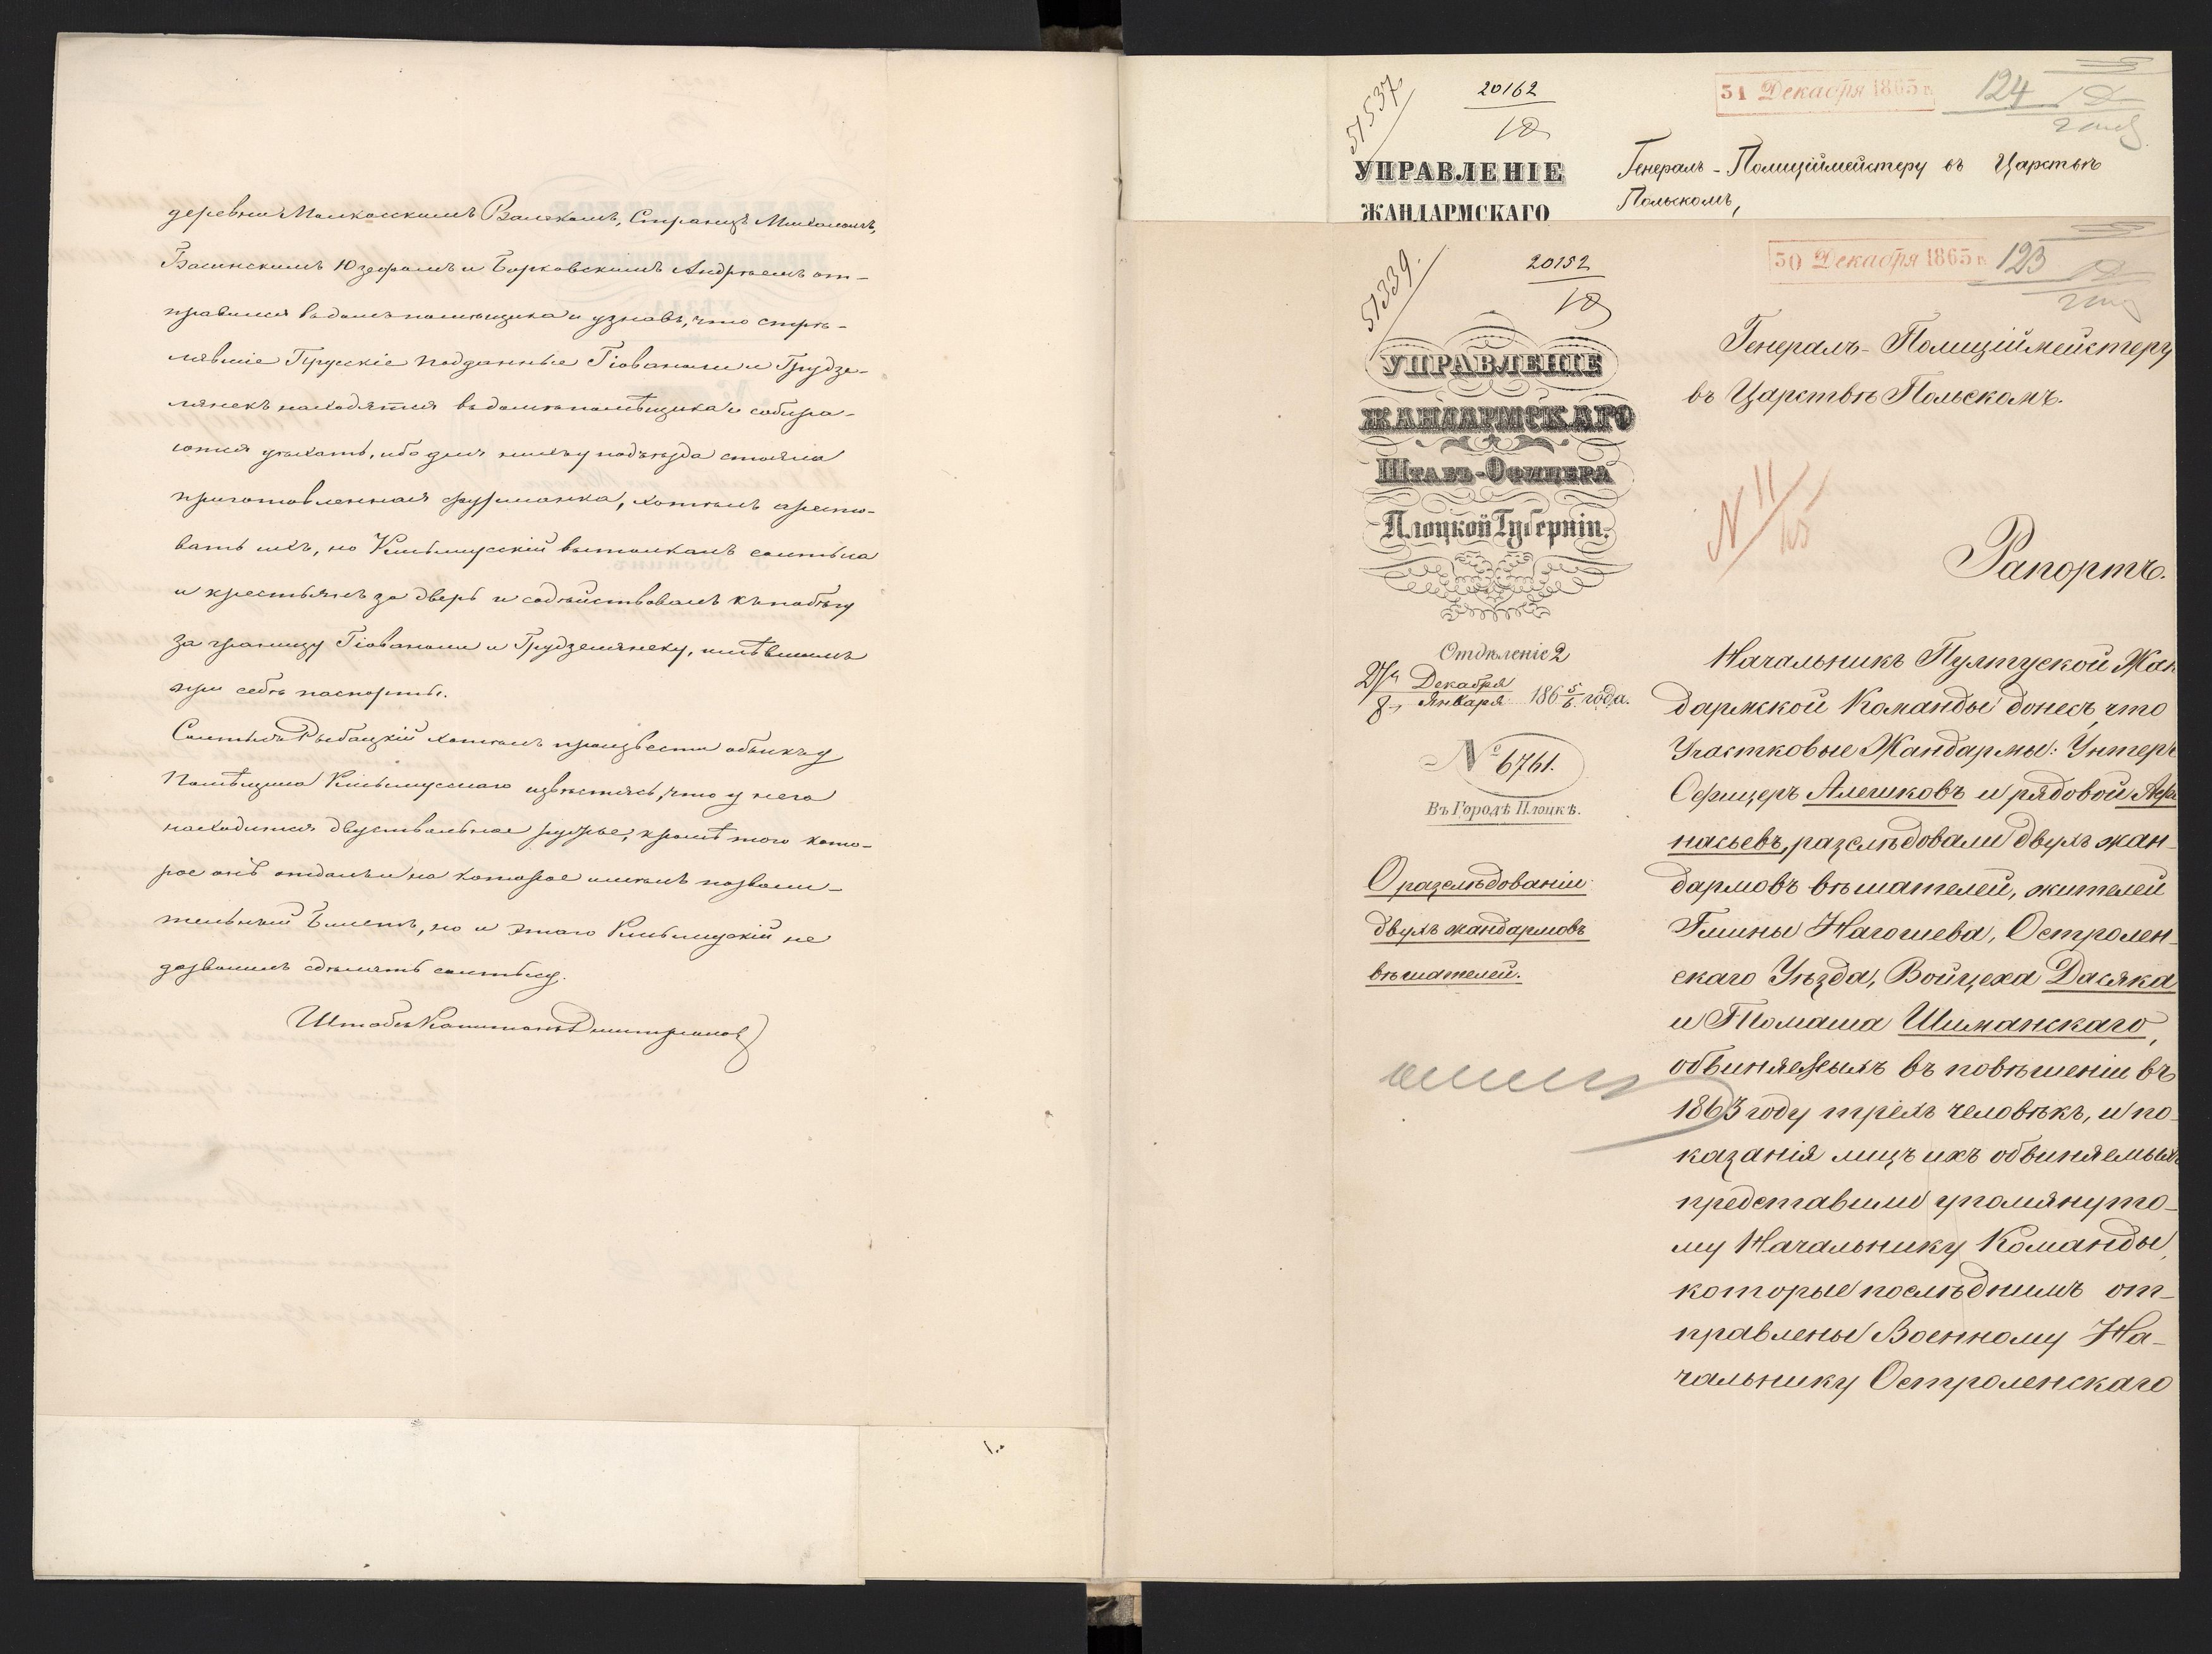 деревни Малкосскимъ Валекомъ, Странцъ Михаломъ,
Басинскимъ Юзефомъ и Борковскимъ Андреемъ от-
правился въ домъ помѣщика и узнавъ, что стрѣ-
лявшіе Прусскіе подданные Гіованоли и Грудзе-
лянекъ находятся въ домѣ помѣщика и собира-
ются уѣхать, ибо для нихъ у подъѣзда стояла
приготовленная фурманка, хотѣлъ аресто-
вать ихъ, но вытолкалъ солтыса
и крестьянъ за дверь и содѣйствовалъ къ побѣгу
за границу Гіованоли и Грудзелянеку, имѣвшимъ
при себѣ паспорты.
Солтысъ Рыбацкій хотѣлъ произвести обыскъ у
Помѣщика извѣстясь, что у него
находится двуствольное ружье, кромѣ того кото-
рое онъ отдалъ и на которое имѣлъ позволи-
тельный билетъ, но и этого не
дозволилъ сдѣлать солтысу.
Штабсъ Капитанъ
51537
20162
31 Декабря 1865 г.
124
УПРАВЛЕНІЕ
ЖАНДАРМСКАГО
Генералъ-Полиціймейстеру въ Царствѣ
Польскомъ,
51339.
20152
30 Декабря 1865 г.
123
УПРАВЛЕНІЕ
ЖАНДАРМСКАГО
Штабъ-Офицера
Плоцкой Губерніи.
Отдѣленіе 2
27 Декабря
8 Января 186 5/6 года.
№ 6761.
Въ Городѣ Плоцкѣ.
О разслѣдованіи
двухъ жандармовъ
вѣшателей.
Генералъ-Полиціймейстеру
въ Царствѣ Польскомъ.
N 11/65
Рапортъ.
Начальникъ Пултуской Жан
дармской Команды донесъ, что
Участковые Жандармы: Унтеръ
Офицеръ Алешковъ и рядовой Афа
насьевъ, разслѣдовали двухъ жан-
дармовъ вѣшателей, жителей
Гмины Нагошева, Остролен-
скаго Уѣзда, Войцеха Дасяка
и Томаша Шиманскаго,
обвиняемыхъ въ повѣшеніи въ
1863 году трехъ человѣкъ, и по-
казанія лицъ ихъ обвиняемыхъ
представили упомянуто-
му Начальнику Команды,
которые послѣднимъ от-
правлены Военному На-
чальнику Остроленскаго